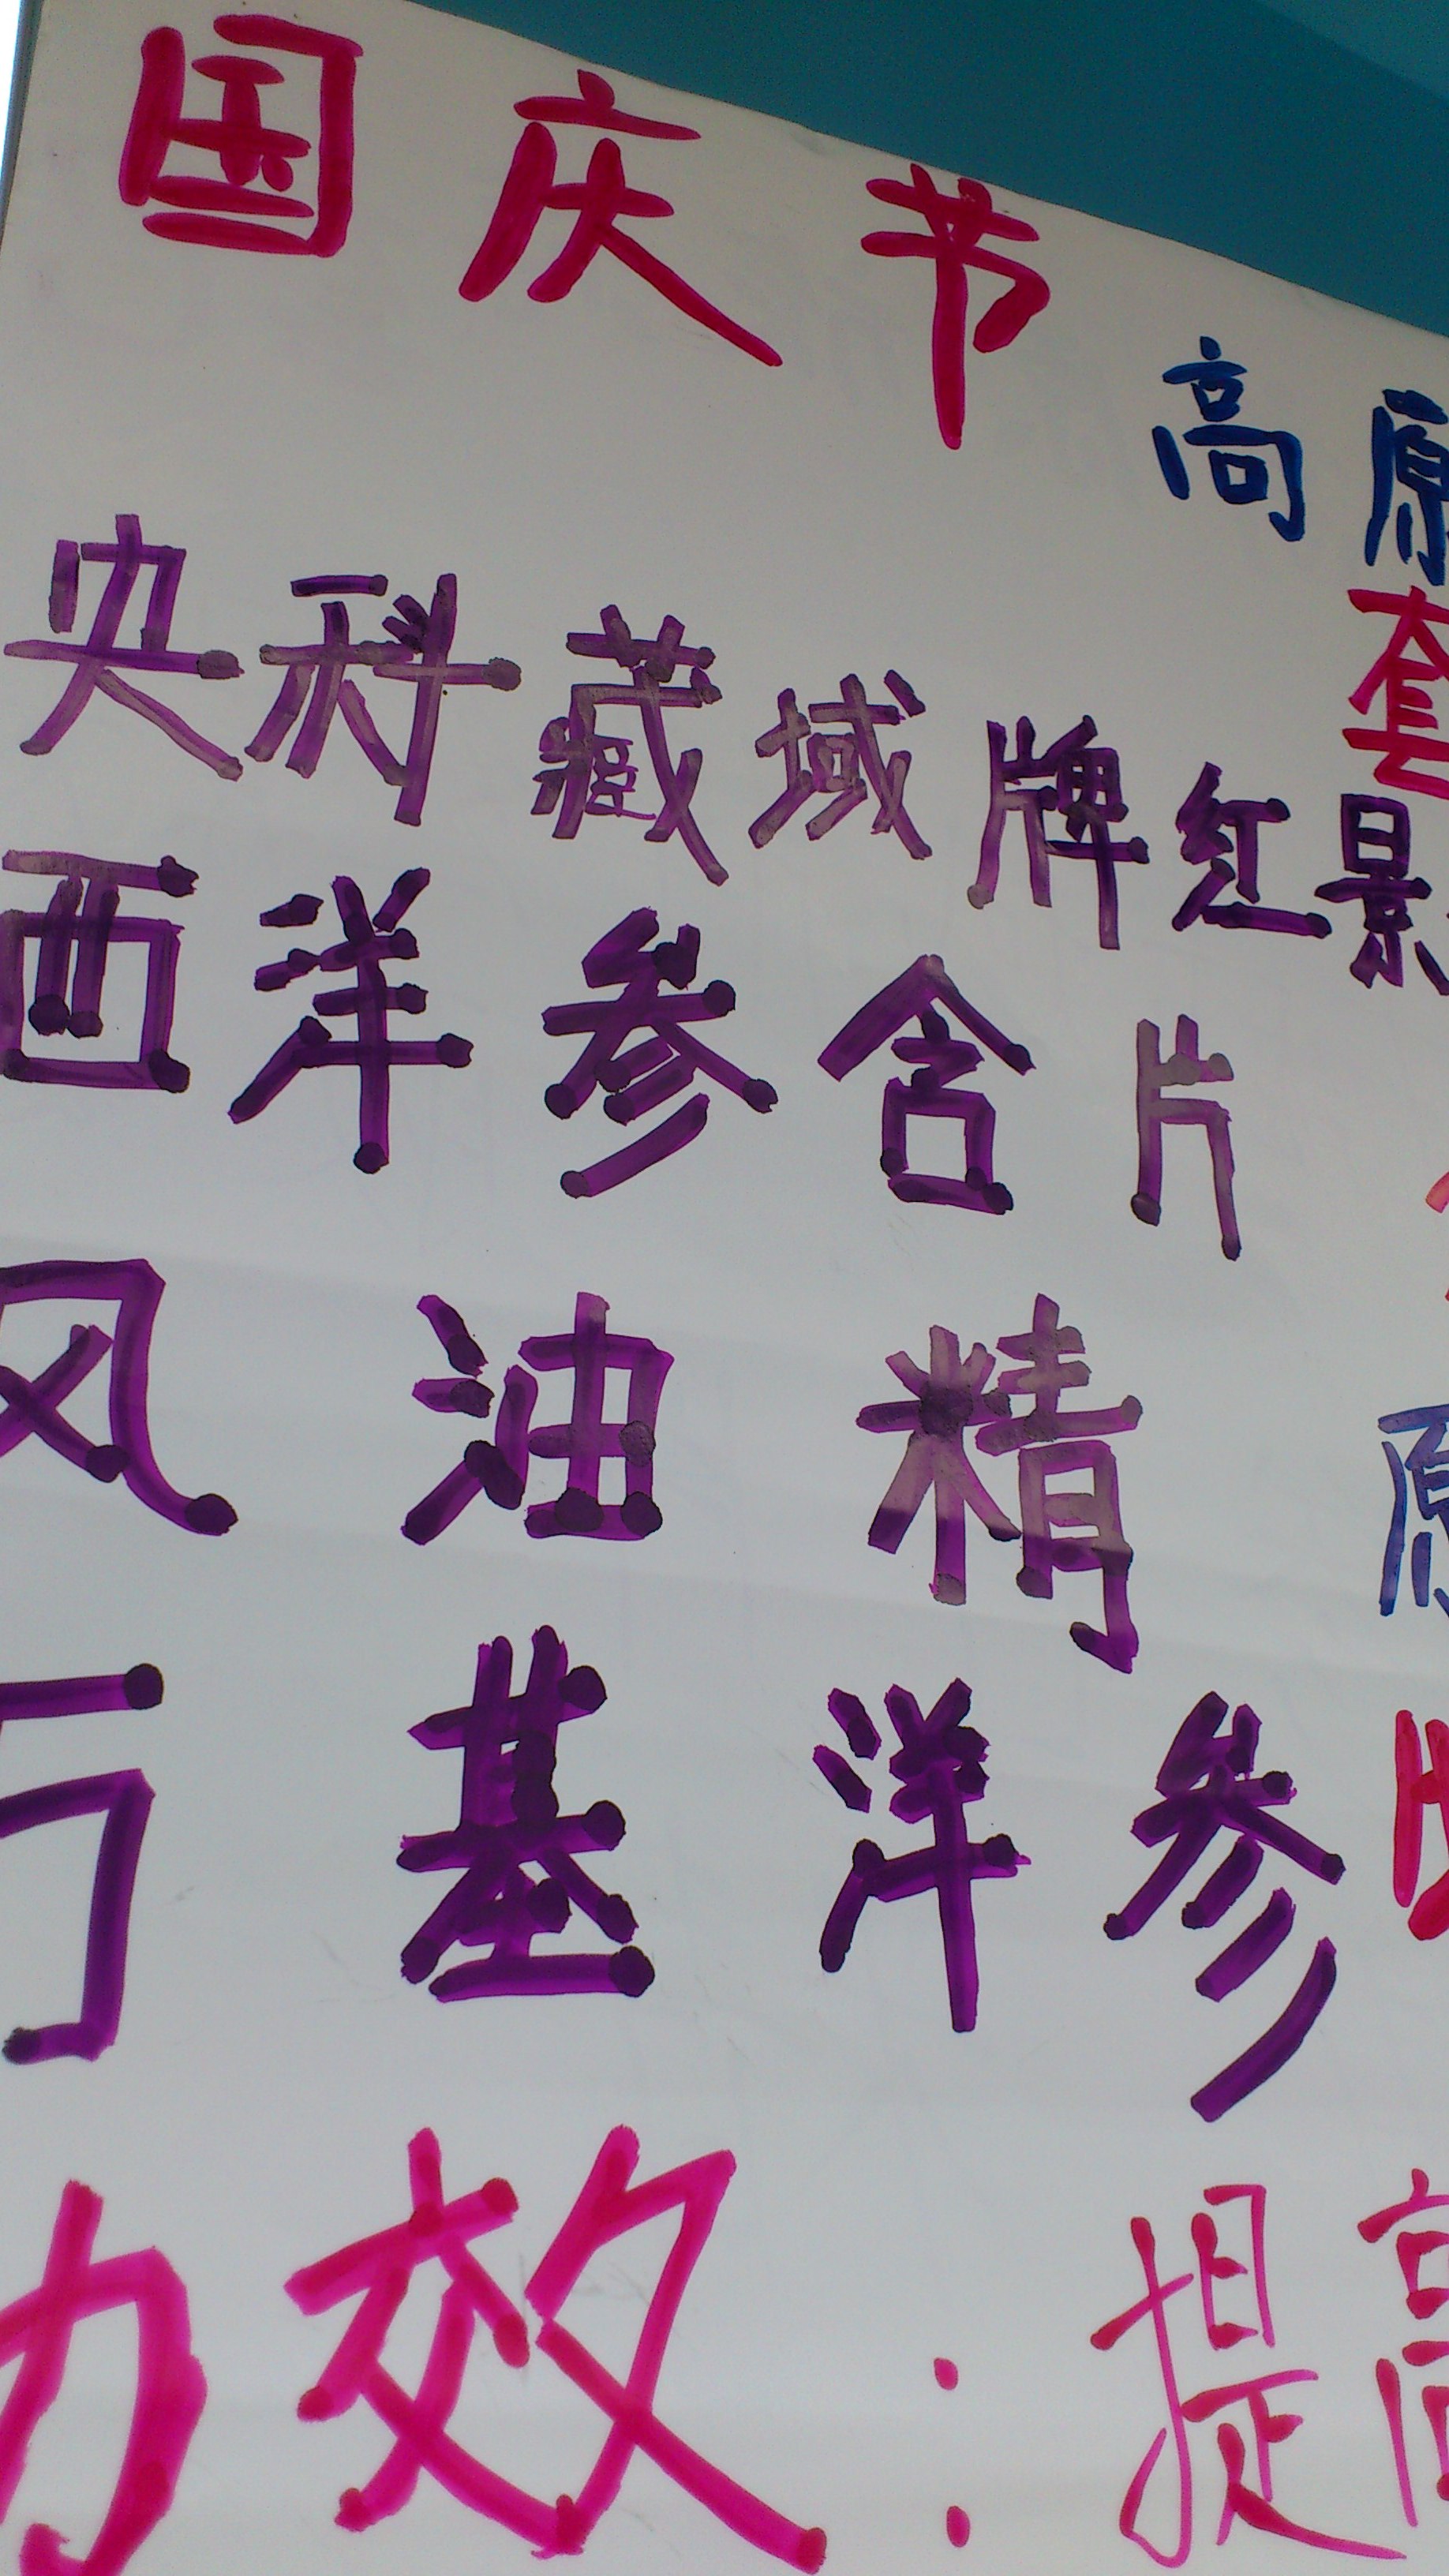 国庆节
高原
套
央科藏域牌红景
西洋参含片
风油精
原
万基洋参
功效：提高